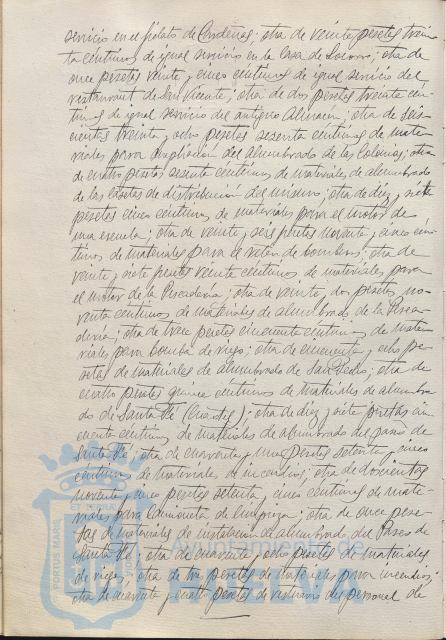 servicio en el pósito de Cárdenas; otra de veinte pesetas trein
ta céntimos de igual servicio en la Casa de Socorro; otra de
once pesetas veinte y cinco céntimos de igual servicio del
restaurant de San Vicente; otra de dos pesetas treinta cén
timos de igual servicio del antiguo Almacén; otra de seis
cientas treinta y ocho pesetas sesenta céntimos de mate
riales para ampliación del alumbrado de las Colonias; otra
de cuatro pesetas sesenta céntimos de materiales de alumbrado
de las casetas de distribución del mismo; otra de diez y siete
pesetas cinco céntimos de materiales para el motor de
una escuela; otra de veinte y seis pesetas noventa y cinco cén
timos de materiales para el retén de bomberos; otra de
veinte y siete pesetas veinte céntimos de materiales para
el motor de la Pescadería; otra de veinte y dos pesetas no
venta céntimos de materiales de alumbrado de la Pesca
dería; otra de trece pesetas cincuenta céntimos de mate
riales para bomba de riego; otra de cincuenta y ocho pe
setas de materiales de alumbrado de San Pedro; otra de
cuatro pesetas quince céntimos de materiales de alumbra
do de Santa Fé (Cuartel); otra de diez y siete pesetas cin
cuenta céntimos de materiales de alumbrado del paseo de
Santa Fé; otra de cuarenta y una pesetas setenta y cinco
céntimos de materiales de incendios; otra de doscientas
noventa y cinco pesetas setenta y cinco céntimos de mate
riales para camioneta de limpieza; otra de once pese
tas de materiales de instalación de alumbrado del Paseo de
Santa Fé; otra de cuarenta y ocho pesetas de materiales
de riegos; otra de tres pesetas de materiales para incendios;
otra de cuarenta y cuatro pesetas de vestuario del personal de
PORTUS MARIS
Ayuntamiento de
HUELVA